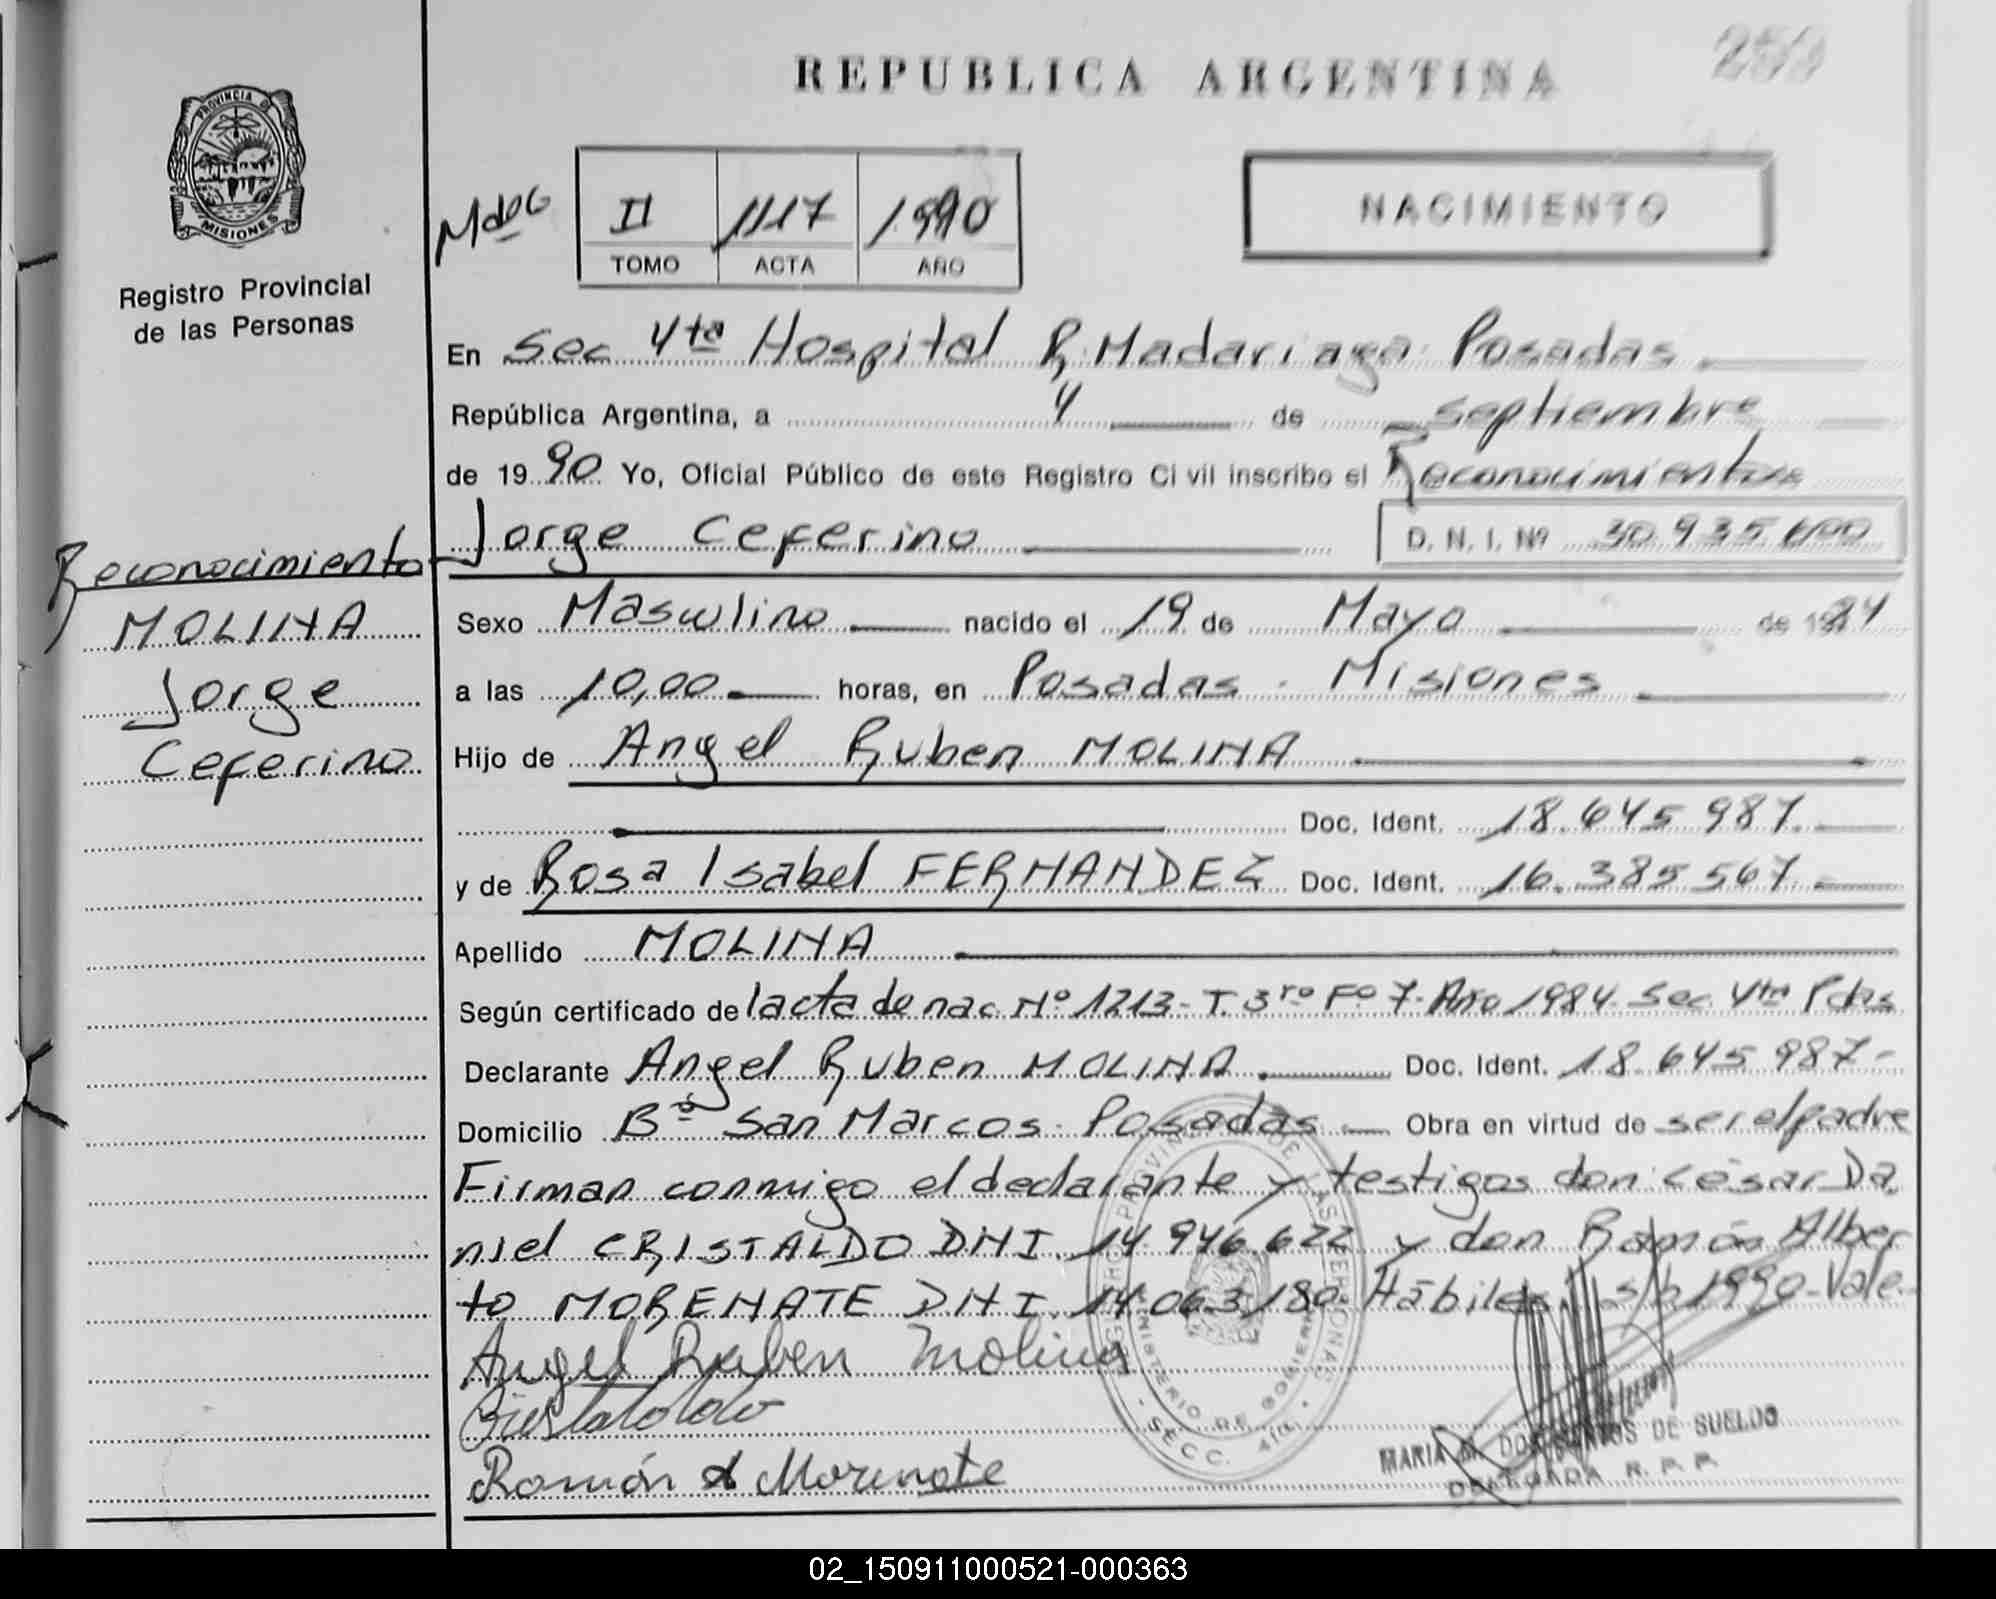 REPUBLICA ARGENTINA
PROVINCIA DE MISIONES
Registro Provincial
de las Personas
II 1117 1990
TOMO ACTA AÑO
NACIMIENTO
En Sec 4ta Hospital R. Madariaga Posadas
República Argentina, a 4 de septiembre
de 1990 Yo, Oficial Público de este Registro Civil inscribo el Reconocimiento
Jorge Ceferino D. N. I. Nº 30.935.600
Reconocimiento
MOLINA
Jorge
Ceferino
Sexo Masculino nacido el 19 de Mayo de 1984
a las 10,00 horas, en Posadas - Misiones
Hijo de Angel Ruben MOLINA
Doc. Ident. 18.645 987.
y de Rosa Isabel FERNANDEZ Doc. Ident. 16.385 567.
Apellido MOLINA
Según certificado de acta de nac Nº 1213 - T. 3ro Fº 7 - Año 1984. Sec 4ta Pdas
Declarante Angel Ruben MOLINA Doc. Ident. 18.645 987-
Domicilio Bº San Marcos - Posadas Obra en virtud de ser el padre
Firman conmigo el declarante y testigos don César Da
niel CRISTALDO DNI. 14.946.622 y don Ramón Alber
to MORENATE DNI. 14.063.180. Hábiles. s/b 1990 - Vale.-
Angel Ruben Molina
Cristaldo
Ramón A Morenate
REGISTRO PROVINCIAL DE LAS PERSONAS
MINISTERIO DE GOBIERNO
SECC. 4ta.
MARIA M. DE SUELDO
DELEGADA R. P. P.
02_150911000521-000363